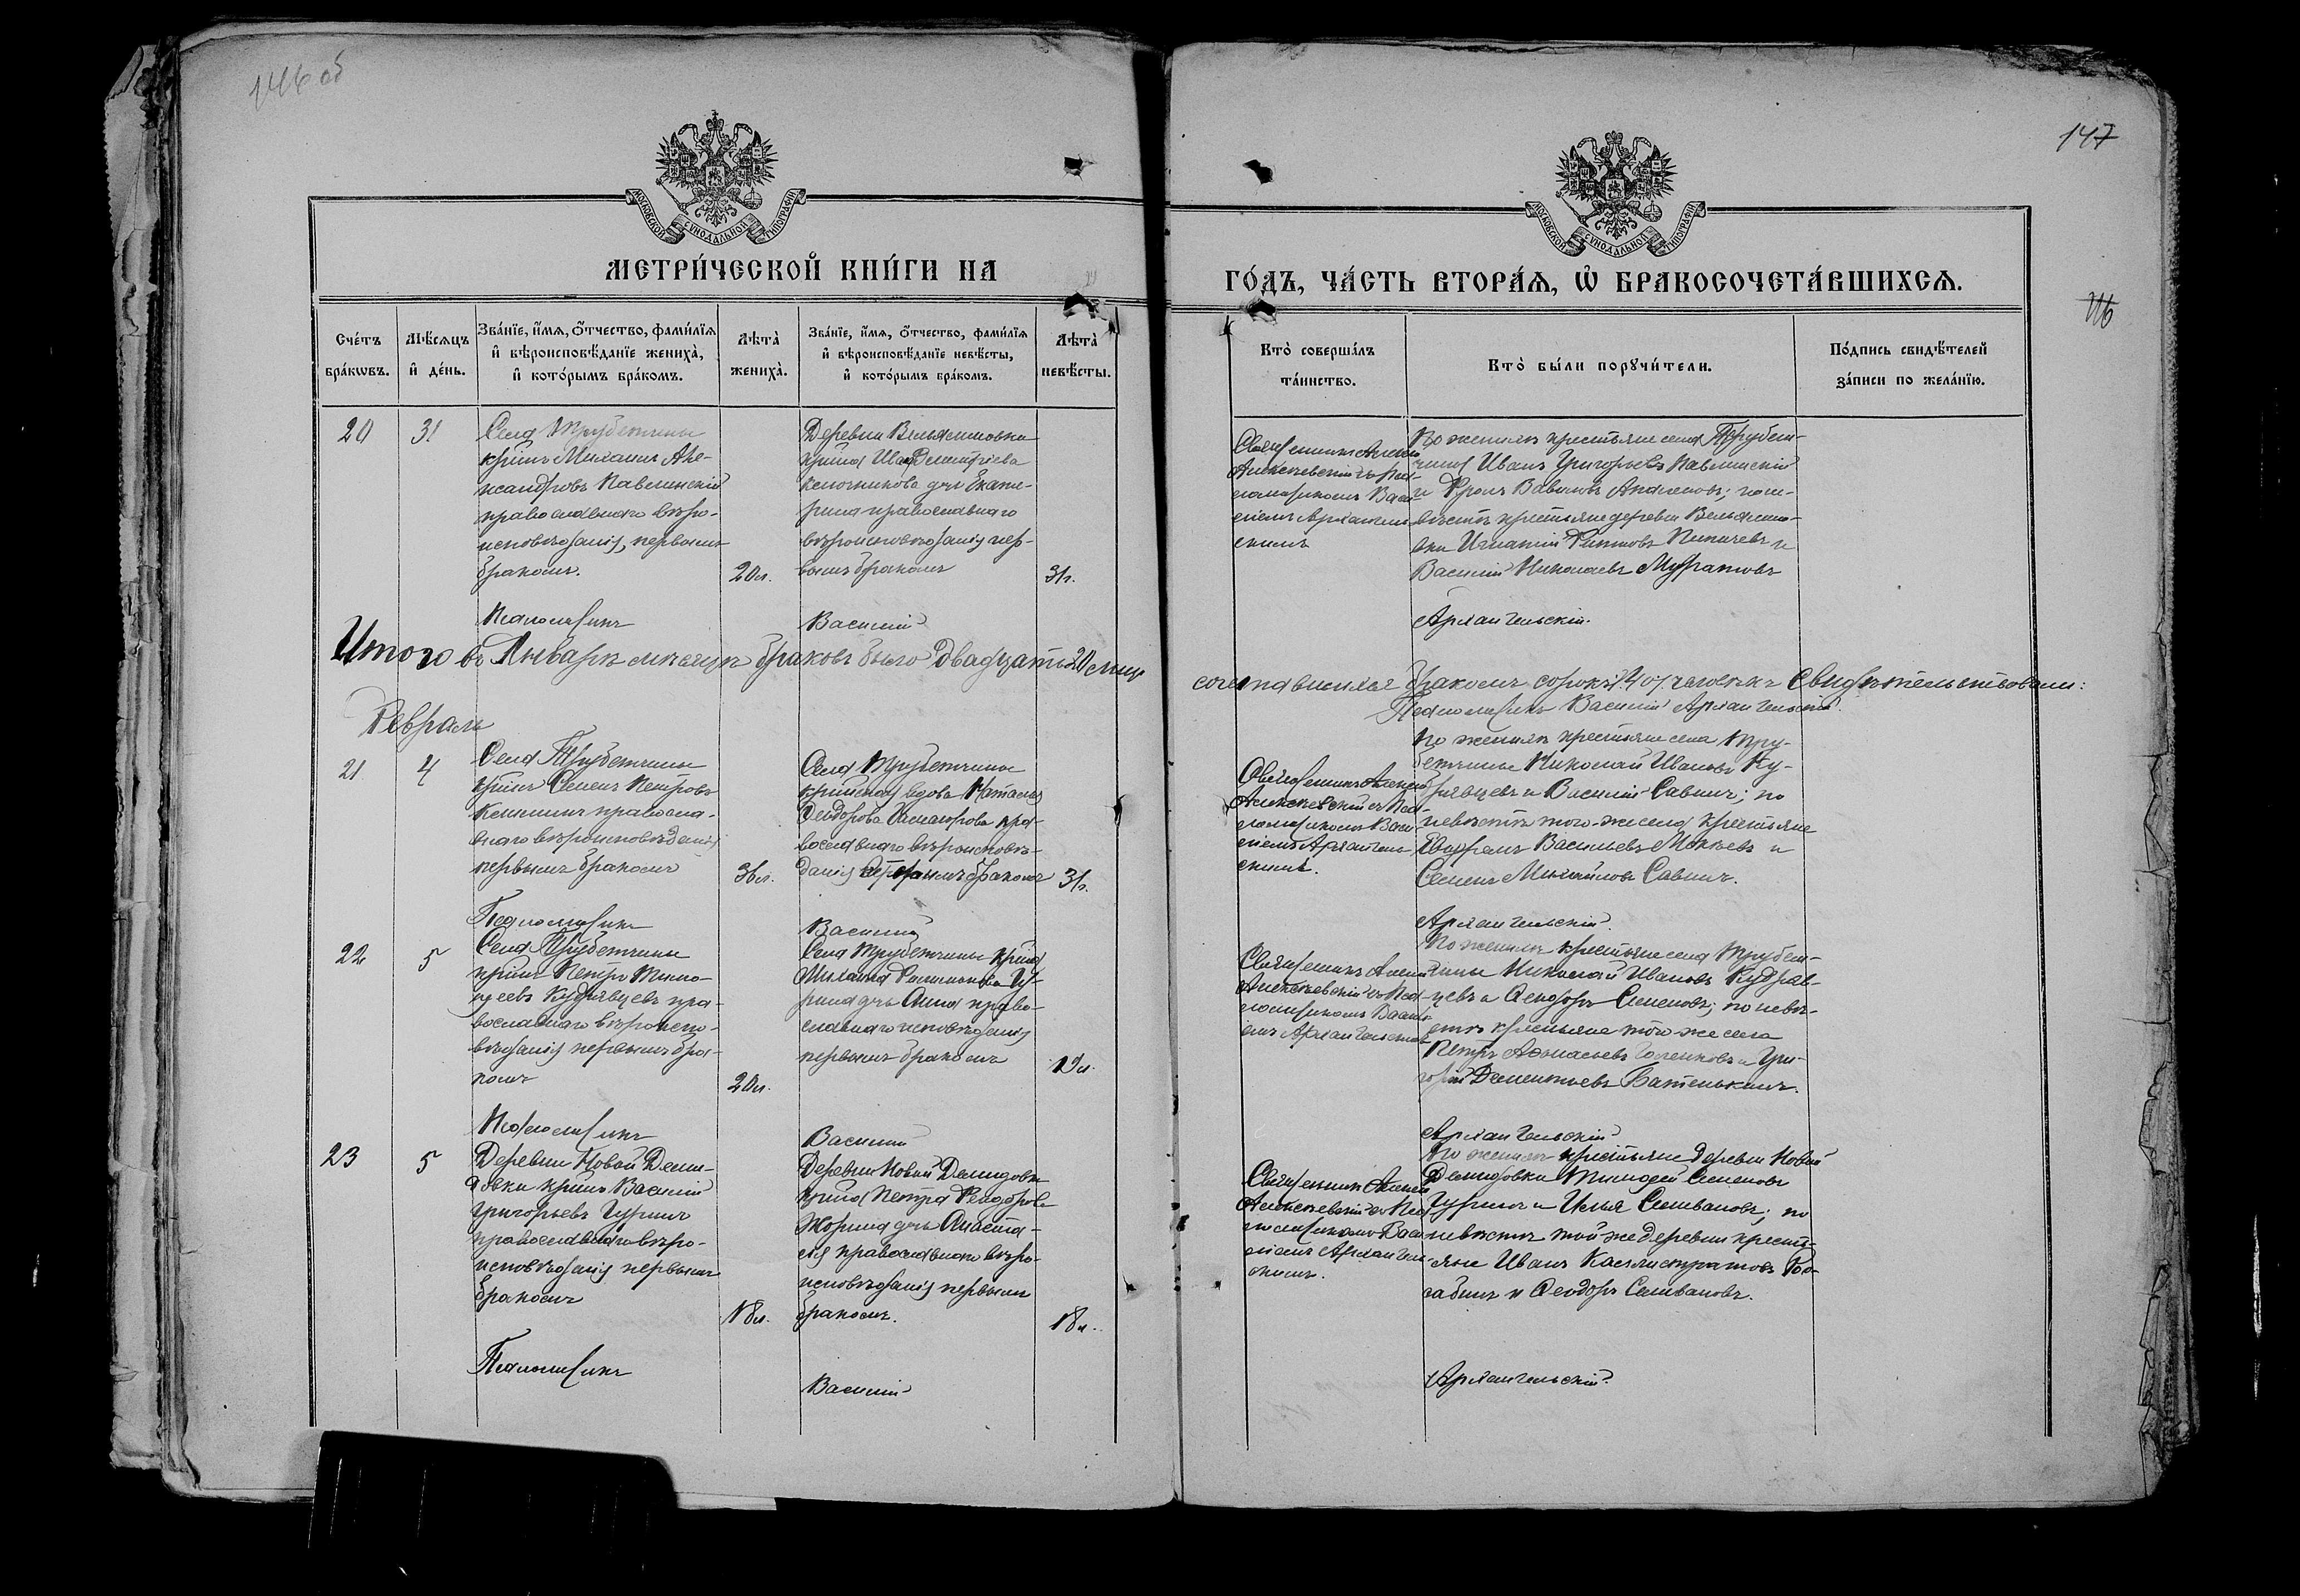 146 об
147
116
МОСКОВСКОЙ СУНОДАЛЬНОЙ ТИПОГРАФІИ
МОСКОВСКОЙ СУНОДАЛЬНОЙ ТИПОГРАФІИ
МЕТРИ́ЧЕСКОЙ КНИ́ГИ НА
ГО́ДЪ, ЧА́СТЬ ВТОРА́Я, Ѡ БРАКОСОЧЕТА́ВШИХСЯ.
Сче́тъ
бра́кѡвъ.
Мѣ́сяцъ
и де́нь.
Зва́нїе, и́мя, о́тчество, фами́лїя
и вѣроисповѣ́данїе жениха̀,
и кото́рымъ бра́комъ.
Лѣта̀
жениха̀.
Зва́нїе, и́мя, о́тчество, фами́лїя
и вѣроисповѣ́данїе невѣ́сты,
и кото́рымъ бра́комъ.
Лѣта̀
невѣ́сты.
Кто̀ соверша́лъ
та́инство.
Кто̀ бы́ли порꙋчи́тели.
По́дпись свидѣ́телей
за́писи по жела́нїю.
20
31
Села Трубетчины
крїинъ Михаилъ Але-
ксандровъ Павлинскій
православнаго вѣро-
исповѣданія, первымъ
бракомъ.
20 л.
Деревни Вельяминовки
крїина Ива Димитріева
дчь Екате-
рина православнаго
вѣроисповѣданія пер-
вымъ бракомъ
31 г.
Священникъ Алексѣй
Алексѣевскій съ Пса-
ломщикомъ Васи-
ліемъ Архангель-
скимъ
По женихѣ крестьяне села Трубет-
чины Иванъ Григорьевъ Павлинскій
и Фролъ Вавиловъ; по не-
вѣстѣ крестьяне деревни Вельямино-
вки Игнатій и
Василій Николаевъ Муратовъ
Псаломщикъ
Василій
Архангельскій.
Итого въ Январѣ мѣсяцѣ браковъ было двадцать 20 лицъ
сочетавшихся бракомъ сорокъ /40/ человѣкъ Свидѣтельствовали:
Псаломщикъ Василій Архангельскій.
Февраль
21
4
Села Трубетчины
крїинъ Семенъ Петровъ
православ-
наго вѣроисповѣданія
первымъ бракомъ
36 л.
Села Трубетчины
крїиская вдова Наталья
Ѳеодорова пра-
вославнаго вѣроисповѣ-
данія вторымъ бракомъ
31 г.
Священникъ Алексѣй
Алексѣевскій съ Пса-
ломщикомъ Васи-
ліемъ Архангель-
скимъ.
По женихѣ крестьяне села Тру-
бетчины Николай Ивановъ Ку-
дрявцевъ и Василій Савинъ; по
невѣстѣ того-же села крестьяне
Васильевъ и
Семенъ Михайловъ Савинъ.
Псаломщикъ
Василій
Архангельскій.
22
5
Села Трубетчины
крїинъ Петръ Тимо-
ѳеевъ Кудрявцевъ пра-
вославнаго вѣроиспо-
вѣданія первымъ бра-
комъ
20 л.
Села Трубетчины крїина
Михаила Гу-
рина дчь Анна право-
славнаго исповѣданія
первымъ бракомъ
19 л.
Священникъ Алексѣй
Алексѣевскій съ Пса-
ломщикомъ Васили-
емъ Архангельскимъ
По женихѣ крестьяне села Трубет-
чины Николай Ивановъ Кудряв-
цевъ и Ѳеодоръ Семеновъ; по невѣ-
стѣ крестьяне того же села
Петръ Аѳанасьевъ и Гри-
горій Дементьевъ Батенькинъ.
Псаломщикъ
Василій
Архангельскій
23
5
Деревни Новой Деми-
довки крїинъ Василій
Григорьевъ Гуринъ
православнаго вѣро-
исповѣданія первымъ
бракомъ
18 л.
Деревни Новой Демидовки
крїина Петра Ѳеодорова
Жорина дчь Анаста-
сія православнаго вѣро-
исповѣданія первымъ
бракомъ.
18 л.
Священникъ Алексѣй
Алексѣевскій съ Пса-
ломщикомъ Васи-
ліемъ Архангель-
скимъ.
По женихѣ крестьяне деревни Новой
Демидовки Тимоѳей Семеновъ
Гуринъ и Илья Селивановъ; по
невѣстѣ той же деревни кресть-
яне Иванъ Калистратовъ
и Ѳеодоръ Селивановъ.
Псаломщикъ
Василій
Архангельскій.